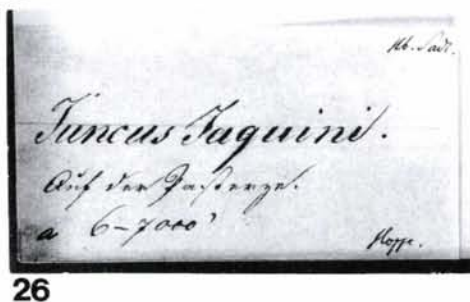 Hb. Sadt.
Juncus Jaquini.
Auf der Pasterze.
a 6-7000'
Hoppe.
26